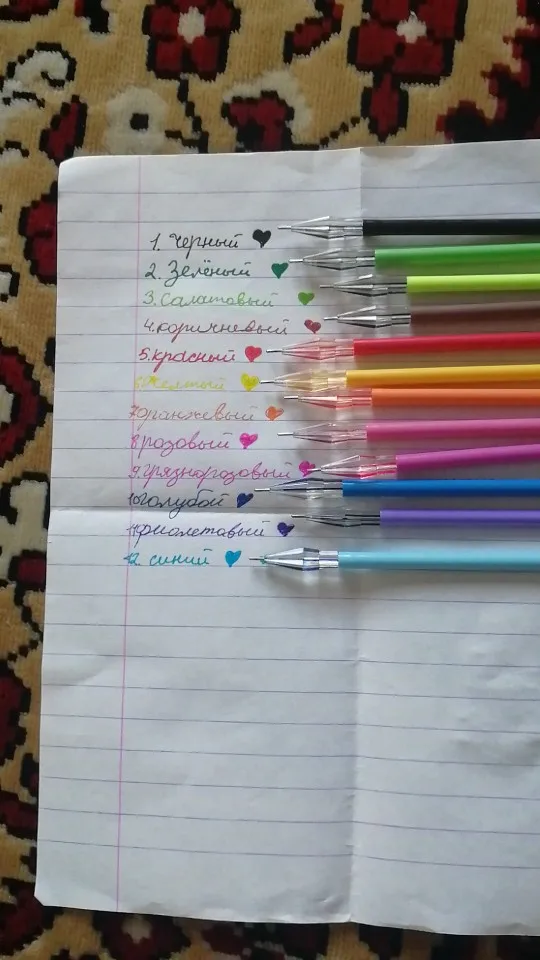 1. Чёрный
2. Зелёный
3. Салатовый
4. коричневый
5. красный
6 Желтый
7 оранжевый
8 розовый
9. грязнорозовый
10 голубой
11 фиолетовый
12 синий